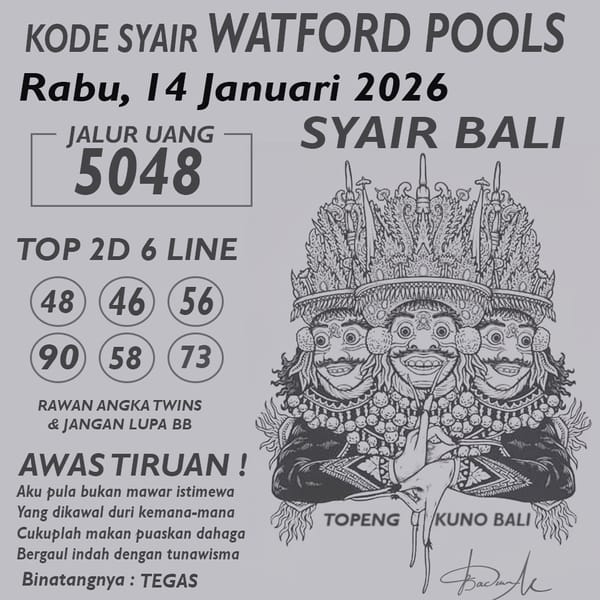 KODE SYAIR WATFORD POOLS
Rabu, 14 Januari 2026
JALUR UANG
5048
SYAIR BALI
TOP 2D 6 LINE
48 46 56
90 58 73
RAWAN ANGKA TWINS
& JANGAN LUPA BB
AWAS TIRUAN !
Aku pula bukan mawar istimewa
Yang dikawal duri kemana-mana
Cukuplah makan puaskan dahaga
Bergaul indah dengan tunawisma
Binatangnya : TEGAS
TOPENG KUNO BALI